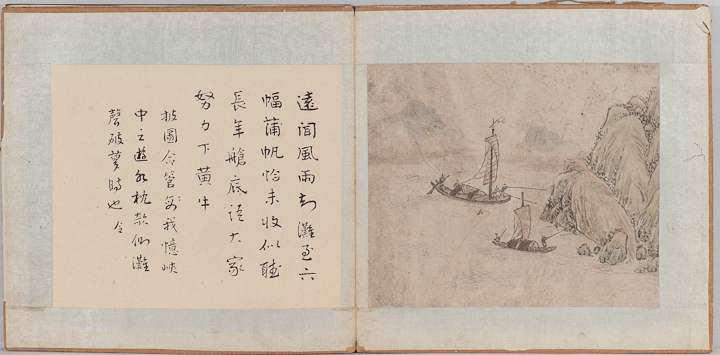 遠聞風雨知灘至六
幅蒲帆恰未收似聽
長年艙底語大家
努力下黃牛
披圖令我憶峽
中之遊枕灘
聲破夢時也